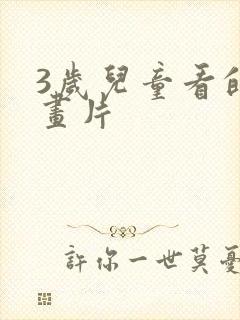 3歲兒童看的
畫片
許你一世莫憂